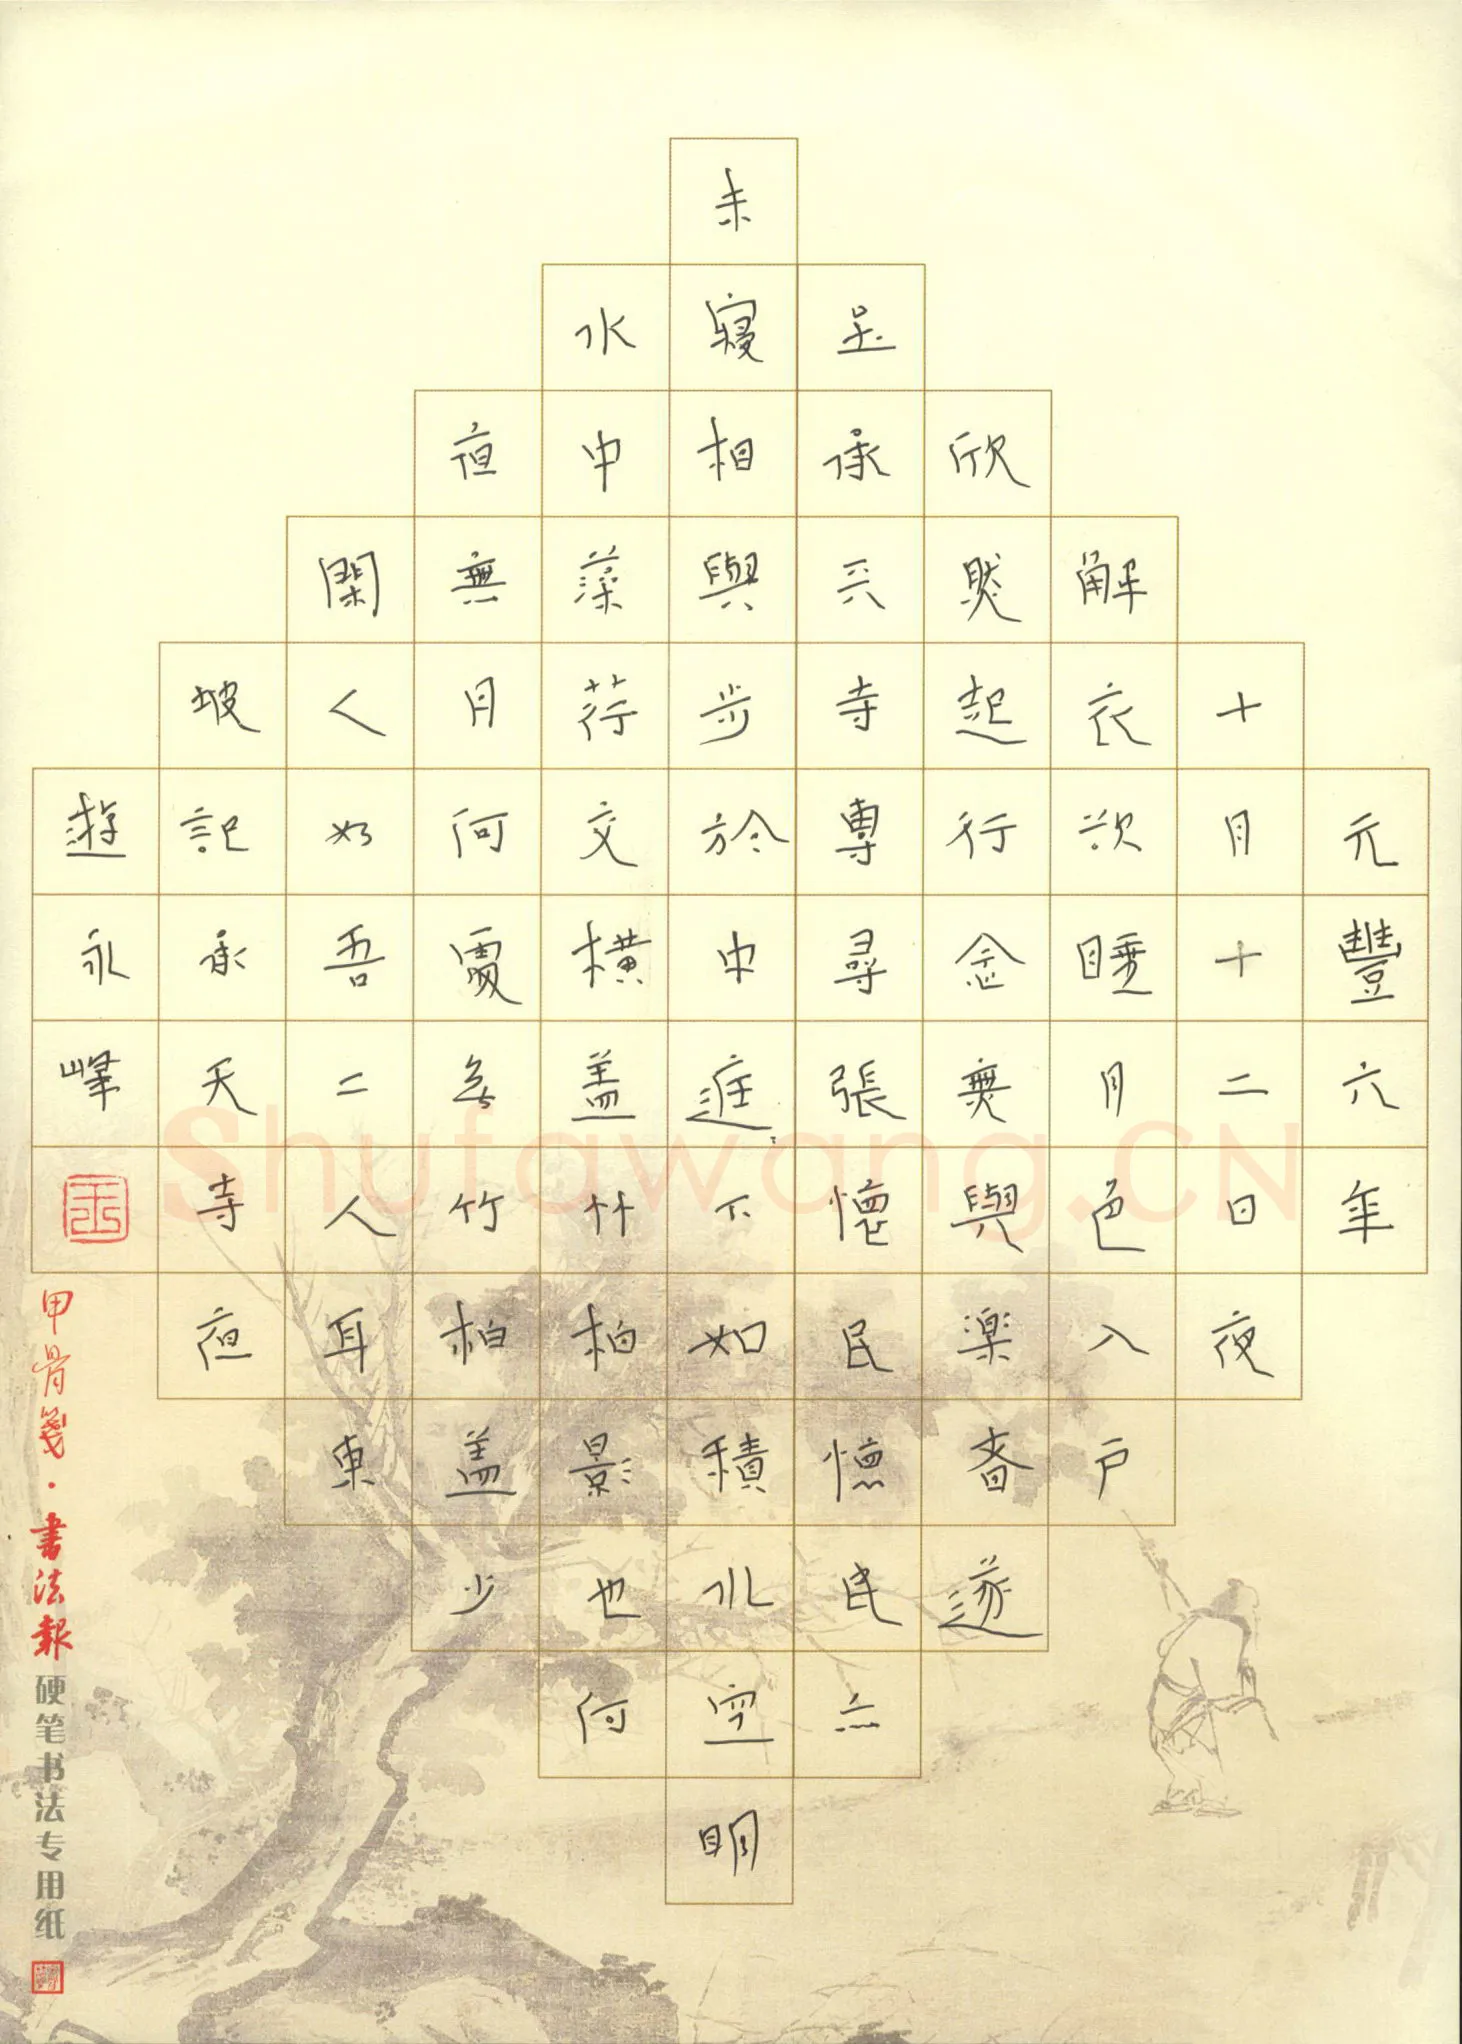 元豐六年
十月十二日夜
解衣欲睡月色入戶
欣然起行念無與楽者遂
至承天寺專尋張懷民懷民亦
未寢相與步於中庭下如積水空明
水中藻荇交橫盖竹柏影也何
夜無月何處无竹柏盖少
閑人如吾二人耳東
坡記承天寺夜
遊永峰
甲骨箋·書法報硬笔书法专用纸
Shufawang.CN